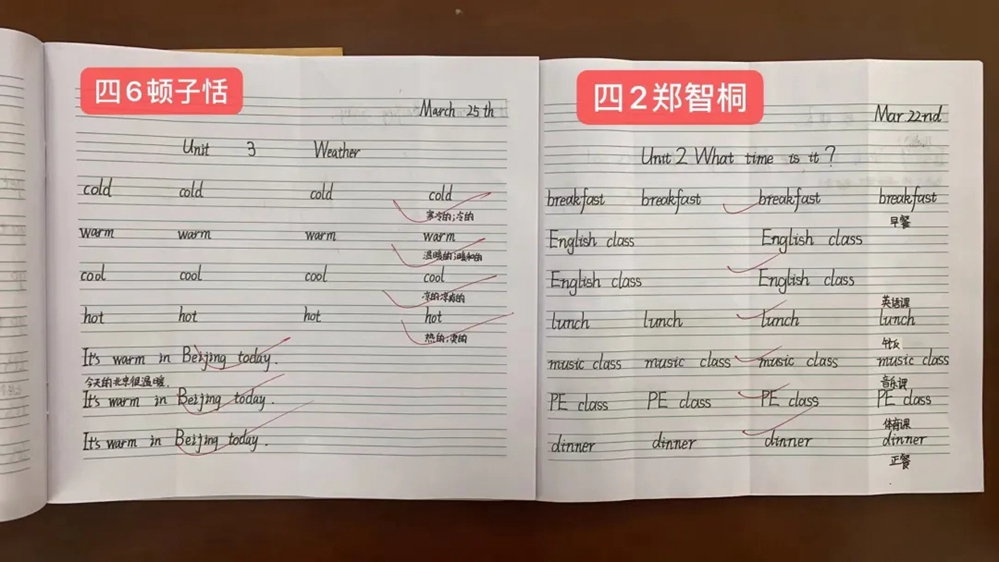 四6顿子恬
March 25th
Unit 3 Weather
cold cold cold cold
寒冷的;冷的
warm warm warm warm
温暖的;暖和的
cool cool cool cool
凉的;凉爽的
hot hot hot hot
热的;烫的
It's warm in Beijing today.
今天的北京很温暖.
It's warm in Beijing today.
It's warm in Beijing today.
四2郑智桐
Mar 22nd
Unit 2 What time is it?
breakfast breakfast breakfast breakfast
早餐
English class English class
English class English class
英语课
lunch lunch lunch lunch
午饭
music class music class music class music class
音乐课
PE class PE class PE class PE class
体育课
dinner dinner dinner dinner
正餐